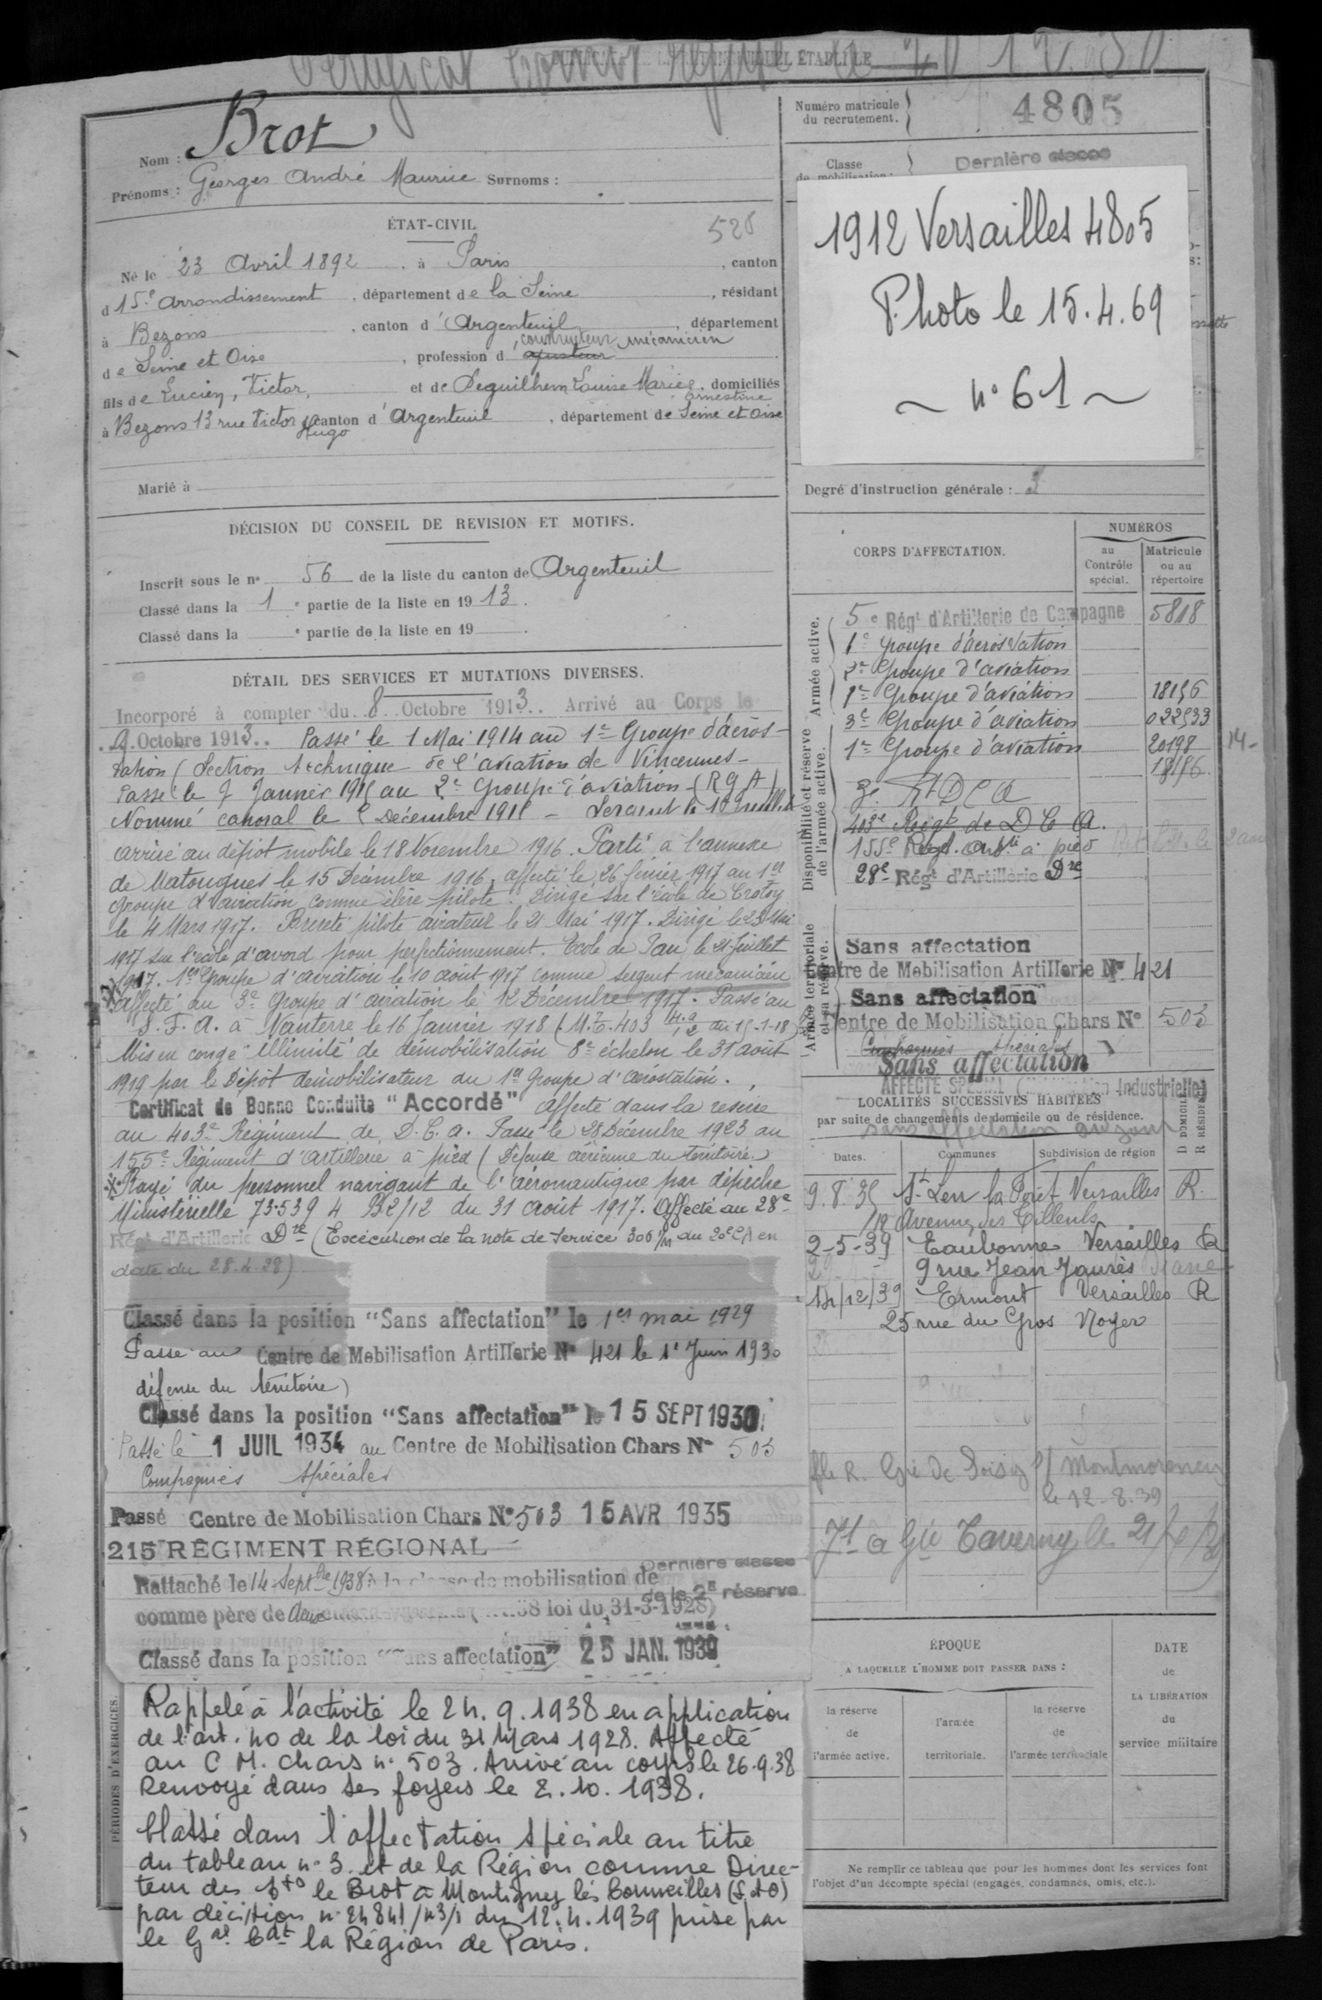 Certificat
ETABLI LE
Nom : Brot
Prénoms : Georges André Maurice Surnoms :
Numéro matricule du recrutement. 4805
Classe de mobilisation : Dernière classe
1912 Versailles 4805
Photo le 15.4.69
~ n° 61 ~
ÉTAT-CIVIL
Né le 23 Avril 1892 à Paris, canton
d 15e arrondissement, département de la Seine, résidant
à Bezons, canton d'Argenteuil, département
de Seine et Oise, profession d ajusteur, constructeur mécanicien
fils de Lucien, Victor, et de Deguilhem Louise Marie Ernestine, domiciliés
à Bezons 13 rue Victor Hugo canton d'Argenteuil, département de Seine et Oise
Marié à
Degré d'instruction générale : 3
DÉCISION DU CONSEIL DE REVISION ET MOTIFS.
Inscrit sous le n° 56 de la liste du canton de Argenteuil
Classé dans la 1e partie de la liste en 1913.
Classé dans la e partie de la liste en 19 .
DÉTAIL DES SERVICES ET MUTATIONS DIVERSES.
Incorporé à compter du 8 Octobre 1913. Arrivé au Corps le
9 Octobre 1913. Passé le 1 Mai 1914 au 1er Groupe d'aéros-
tation (Section technique de l'aviation de Vincennes -
Passé le Janvier 1915 au 2e Groupe d'aviation (R G A)
Nommé caporal le Décembre 1915 - Sergent le
arrivé au dépôt mobile le 18 Novembre 1916. Parti à l'annexe
de Matougues le 15 Décembre 1916, affecté le 26 février 1917 au 1er
Groupe d'aviation comme élève pilote. Dirigé sur l'école de Crotoy
le 4 Mars 1917. Breveté pilote aviateur le 21 Mai 1917. Dirigé le 23 Mai
1917 sur l'école d'avord pour perfectionnement. Ecole de Pau le 21 Juillet
1917. 1er Groupe d'aviation le 10 aout 1917 comme sergent mécanicien
affecté au 3e Groupe d'aviation le 12 Décembre 1917. Passé au
S. F. A. à Nanterre le 16 Janvier 1918 (M.T. 403 du 15-1-18)
Mis en congé illimité de démobilisation 8e échelon le 31 août
1919 par le Dépôt démobilisateur du 1er Groupe d'aérostation.
Certificat de Bonne Conduite "Accordé" Affecté dans la réserve
au 403e Régiment de D.C.A. Passé le 28 Décembre 1923 au
155e Régiment d'artillerie à pied (Défense aérienne du territoire)
Rayé du personnel navigant de l'aéronautique par dépêche
Ministérielle 73.539 4 B2/12 du 31 août 1917. Affecté au 28e
Régt d'Artillerie Dre (Exécution de la note de service 306 du 20e CA en
date du 28.4.28)
Classé dans la position "Sans affectation" le 1er mai 1929
Passé au Centre de Mobilisation Artillerie N° 421 le 1er Juin 1930
défense du territoire)
Classé dans la position "Sans affectation" le 15 SEPT 1930
Passé le 1 JUIL 1934 au Centre de Mobilisation Chars N° 503
Compagnies spéciales
Passé Centre de Mobilisation Chars N° 503 15 AVR 1935
215e RÉGIMENT RÉGIONAL
Rattaché le 14 Septbre 1938 à la classe de mobilisation de Dernière classe de la 2e réserve
comme père de deux 58 loi du 31-3-1928)
Classé dans la position "Sans affectation" 25 JAN. 1939
PÉRIODES D'EXERCICES.
Rappelé à l'activité le 24.9.1938 en application
de l'art. 40 de la loi du 31 Mars 1928. Affecté
au C M. chars n° 503. Arrivé au corps le 26.9.38
Renvoyé dans ses foyers le 2.10.1938.
Classé dans l'affectation spéciale au titre
du tableau n° 3. et de la Région comme Direc-
teur des Ets le Brot à Montigny lès Cormeilles (S&O)
par décision n° 24841/43/1 du 12.4.1939 prise par
le Gal Cdt la Région de Paris.
CORPS D'AFFECTATION.
NUMÉROS
au Contrôle spécial.
Matricule ou au répertoire
Armée active.
Disponibilité et réserve de l'armée active.
Armée territoriale et sa réserve.
5e Régt d'Artillerie de Campagne 5818
1e Groupe d'aérostation
2e Groupe d'aviation
1er Groupe d'aviation 18156
3e Groupe d'aviation 022533
1er Groupe d'aviation 20198
18156
403e Régt de D C A.
155e Régt artie à pied
28e Régt d'Artillerie Dre
Sans affectation
Centre de Mobilisation Artillerie N° 421
Sans affectation
Centre de Mobilisation Chars N° 503
Compagnies spéciales
Sans affectation
AFFECTÉ SPÉCIAL Industrielle)
LOCALITÉS SUCCESSIVES HABITÉES
par suite de changements de domicile ou de résidence.
Dates. Communes Subdivision de région D DOMICILE R RÉSIDENCE
9.8.35 St Leu la Forêt Versailles R.
Avenue des Tilleuls
2-5-39 Eaubonne Versailles R
9 rue Jean Jaurès
14/12/39 Ermont Versailles R
25 rue du Gros Noyer
Montmorency
le 12-8.39
Taverny le
ÉPOQUE
A LAQUELLE L'HOMME DOIT PASSER DANS :
la réserve de l'armée active.
l'armée territoriale.
la réserve de l'armée territoriale
DATE de LA LIBÉRATION du service militaire
Ne remplir ce tableau que pour les hommes dont les services font
l'objet d'un décompte spécial (engagés, condamnés, omis, etc.).